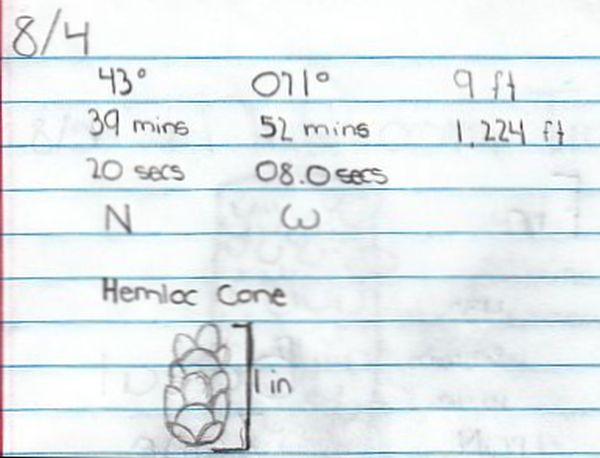 8/4
43° 071° 9 ft
39 mins 52 mins 1,224 ft
20 secs 08.0 secs
N W
Hemloc Cone
1 in